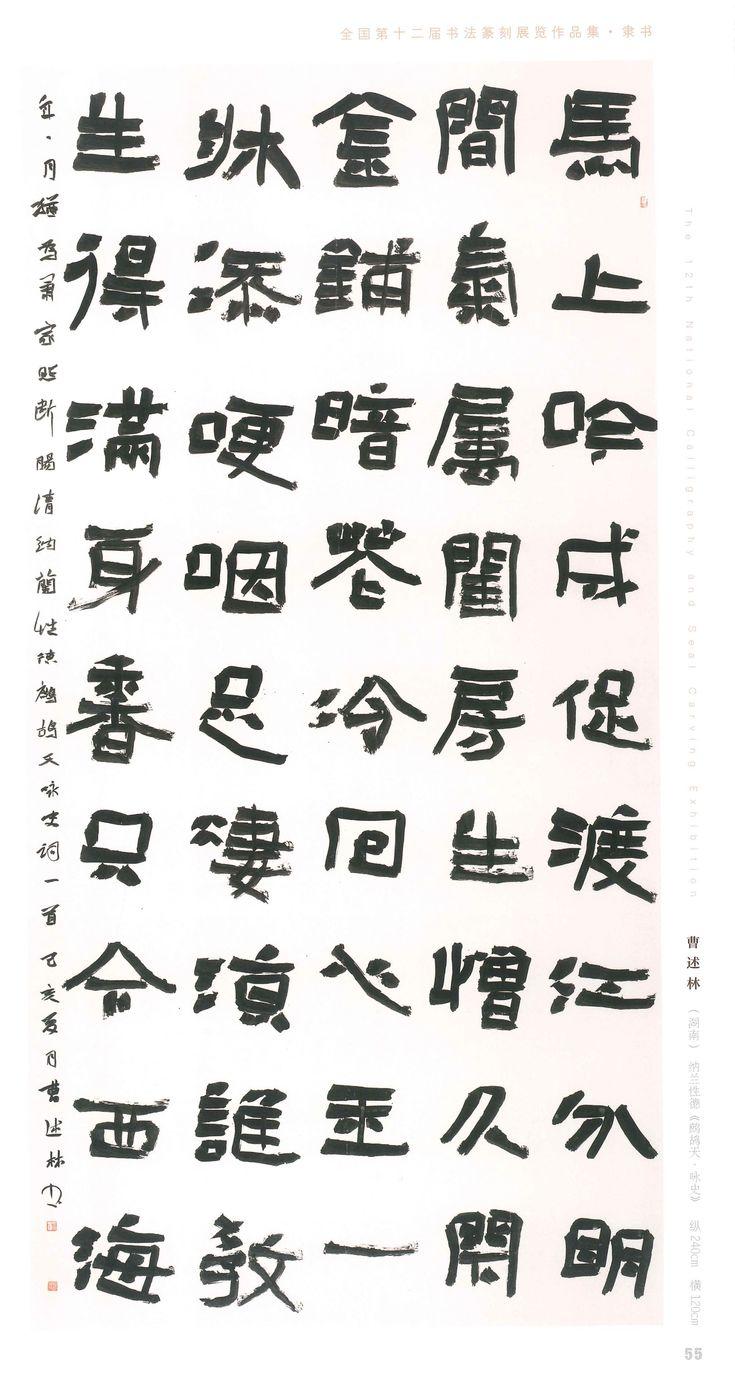 全国第十二届书法篆刻展览作品集·隶书
馬上吟成促渡江分明
間氣屬閨房生憎久閉
金鋪暗花冷回心玉一
牀添哽咽足凄涼誰教
生得滿身香只今西海
年、月猶為蕭家照断腸清納蘭性德鷓鴣天咏史詞一首己亥夏月曹述林書
The 12th National Calligraphy and Seal Carving Exhibition
曹述林（湖南） 纳兰性德《鹧鸪天·咏史》 纵240cm 横120cm
55